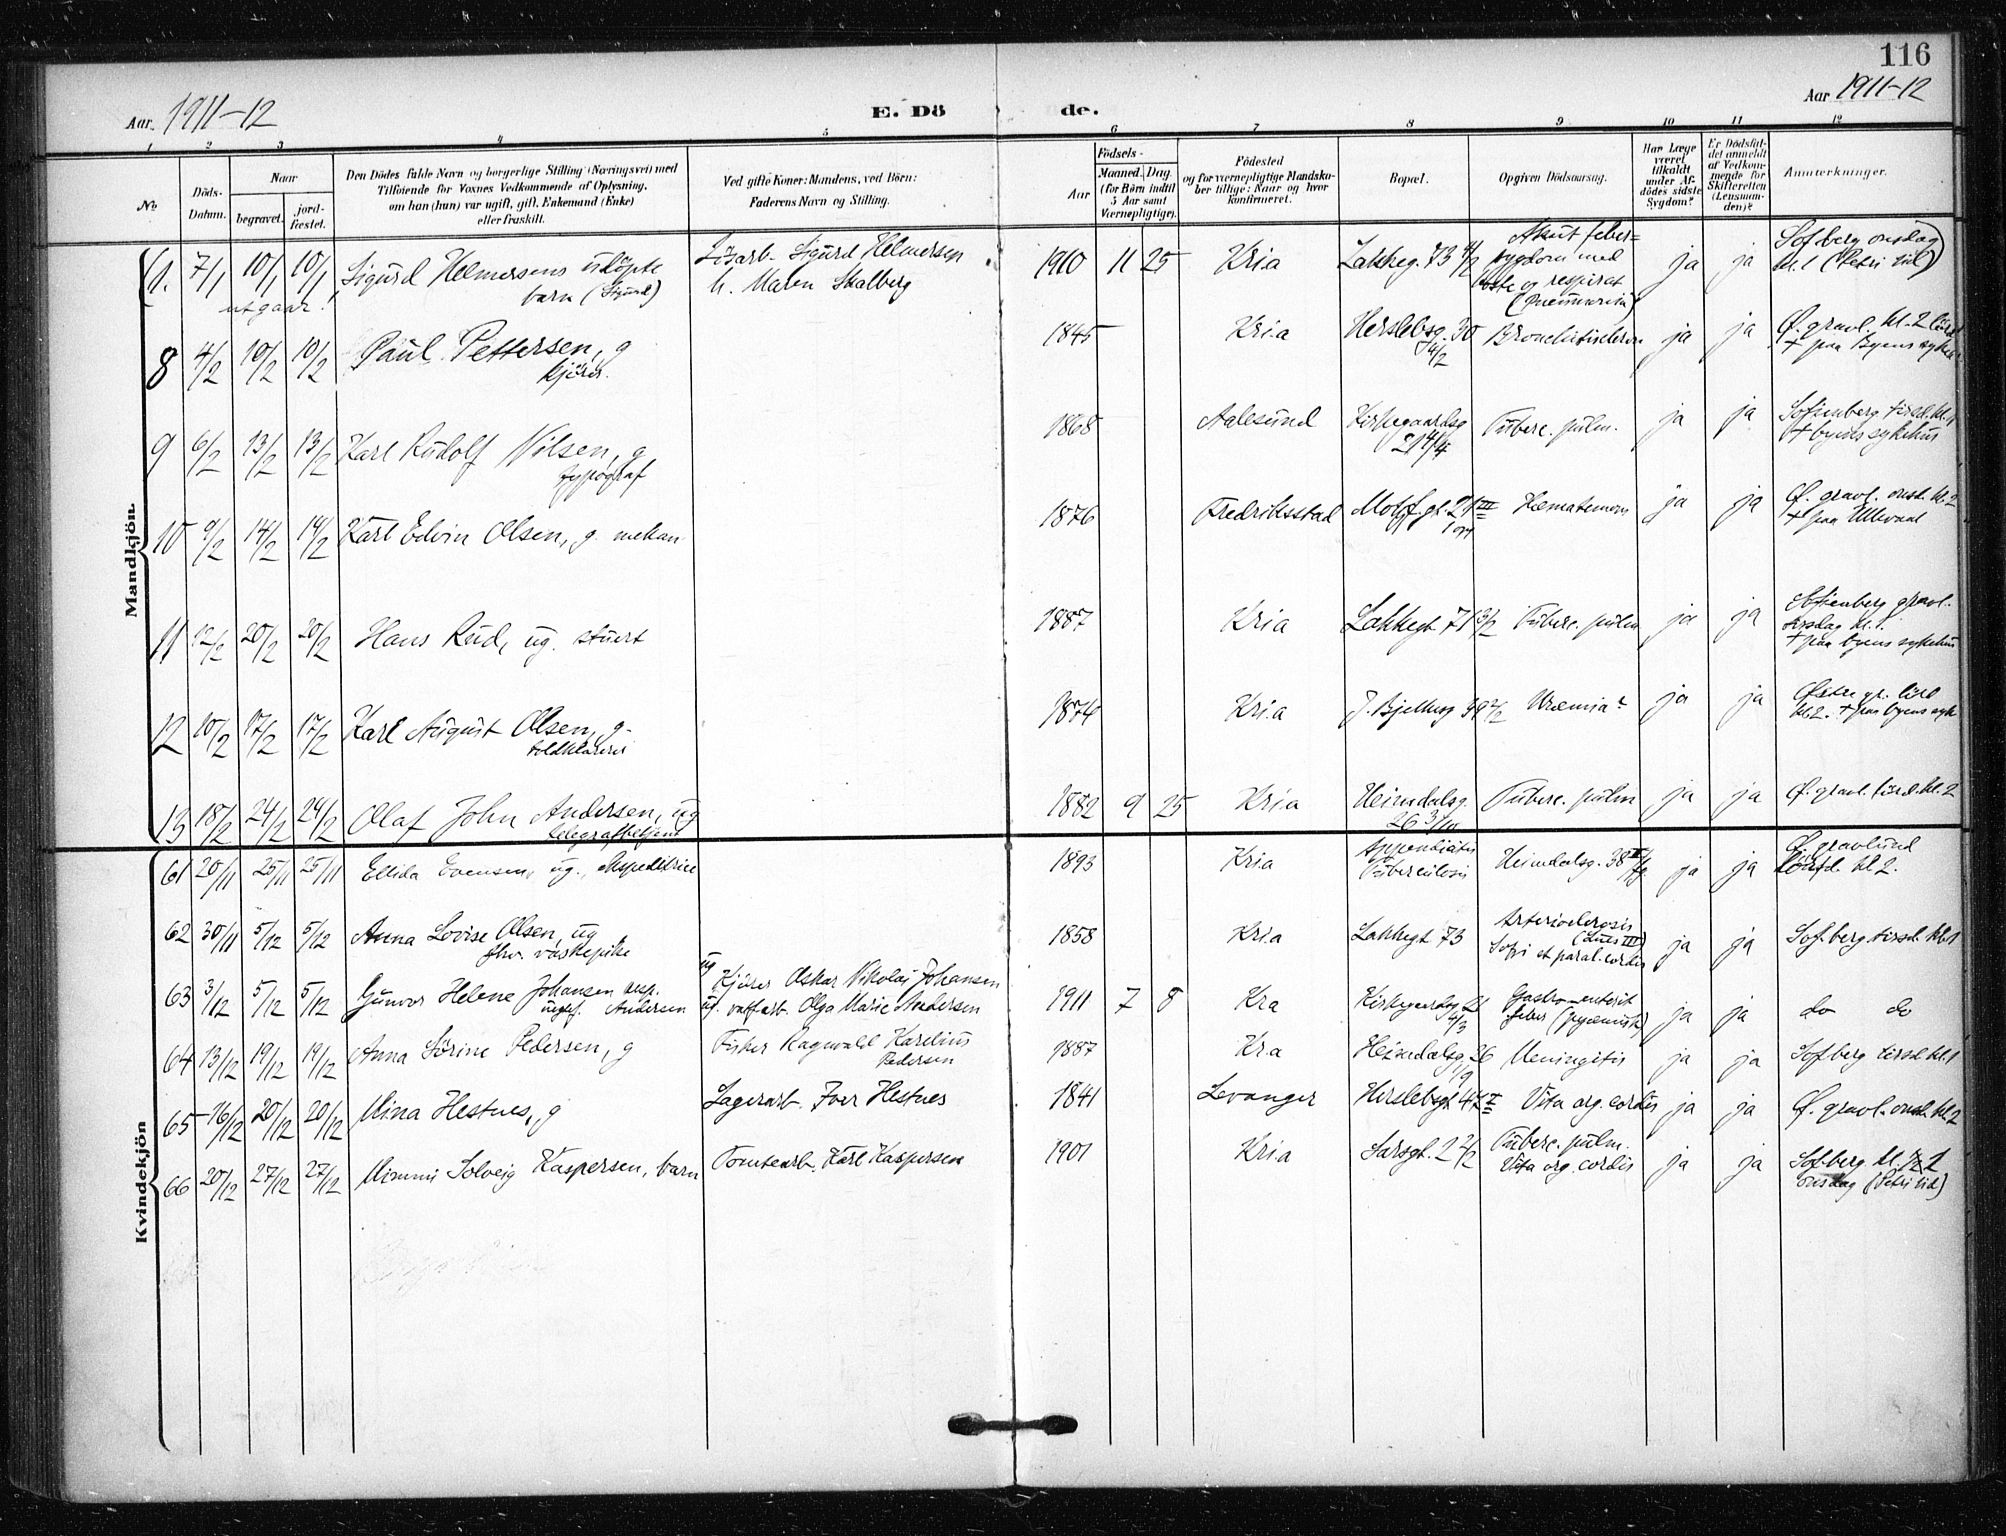 116
Aar. 1911-12
E. Dö de.
Aar 1911-12
1 2 3 4 5 6 7 8 9 10 11 12
No.
Döds-Datum.
Naar
begravet.
jord-fæstet.
Den Dödes fulde Navn og borgerlige Stilling (Næringsvei) med
Tilföiende for Voxnes Vedkommende af Oplysning,
om han (hun) var ugift, gift, Enkemand (Enke)
eller fraskilt.
Ved gifte Koner: Mandens, ved Börn:
Faderens Navn og Stilling.
Födsels-
Aar
Maaned. Dag.
(for Börn indtil
5 Aar samt
Værnepligtige).
Födested
og for værnepligtige Mandska-
ber tillige: Naar og hvor
konfirmeret.
Bopæl.
Opgiven Dödsaarsag.
Har Læge
været
tilkaldt
under Af-
dödes sidste
Sygdom?
Er Dödsfal-
det anmeldt
af Vedkom-
mende for
Skifteretten
(Lensman-
den)?
Anmerkninger.
Mandkjön.
1. 7/1 10/1 10/1 Sigurd Helmersens udöpte
barn (Sigurd)
utgaar!
Sigurd Helmersen
h. Maren Skalberg
1910 11 25 Kria Lakkeg. 73 4/2 Akut feber=
sygdom med
hoste og respirat
(pneumonia)
ja ja Sofberg onsdag
kl. 1 (Petri tid)
8 4/2 10/2 10/2 Paul Pettersen, g
kjörer.
1845 Kria Herslebsg. 30
Bronchitis ja ja Ø. gravl. kl. 2
+ paa Byens
9 6/2 13/2 13/2 Karl Rudolf Nilsen, g
typograf
1868 Aalesund Kirkegaardsg
21 4/4
Tuberc. pulm. ja ja Sofienberg tirsd. kl. 1
+ byens sykehus
10 9/2 14/2 14/2 Karl Edvin Olsen, g. mekan.
1876 Fredriksstad gt. 21 III
opg
ja ja Ø. gravl. onsd. kl. 2
+ paa Ullevaal
11 12/2 20/2 20/2 Hans Rud, ug. stuert
1887 Kria Lakkegt 71 3/2 Tuberc. pulm ja ja Sofienberg gravl.
tirsdag kl. 1.
+ paa byens sykehus
12 10/2 17/2 17/2 Karl August Olsen, g.
1874 Kria J. Bjelkesg 39 2/2 Uræmia? ja ja Østre gr. lörd
kl. 2. + paa byens syk
13 18/2 24/2 24/2 Olaf John Andersen, ug
telegrafbetjent
1882 9 25 Kria Heimdalsg.
26
Tuberc. pulm ja ja Ø. gravl. lörd. kl. 2
Kvindekjön
61 20/11 25/11 25/11 Ellida Evensen, ug., ekspeditrice
1893 Kria Appendicitis
Tuberculosis
Heimdalsg. 38
ja ja Ø gravlund
lörd. kl 2.
62 30/11 5/12 5/12 Anna Lovise Olsen, ug
fhv. vaskepike
1858 Kria Lakkegt 73 Arteriosclerosis
(Lues III)
et paral. cordis
ja ja Sofberg tirsd kl. 1
63 3/12 5/12 5/12 Gunvor Helene Johansen resp.
Andersen
ug Kjörer Oskar Nikolaj Johansen
ug. Olga Marie Andersen
1911 7 8 Kra Kirkegaardsg 21
4/3
Gastro-enterit
feber (pyæmisk)
ja ja do do
64 13/12 19/12 19/12 Anna Sörine Pedersen, g
Fisker Ragnvald Karelius
Pedersen
1887 Kra Heimdalsg. 26 Meningitis ja ja Sofberg tirsd kl. 1
65 16/12 20/12 20/12 Mina Hestnes, g Lagerarb. Iver Hestnes
1841 Levanger Herslebsgt Vitia org. cordis ja ja Ø. gravl. onsd. kl. 2
66 20/12 27/12 27/12 Mimmi Solveig Kaspersen, barn Tomtearb. Karl Kaspersen
1901 Kria Sarsgt. 2 2/2 Tuberc. pulm.
Vitia org. cordis
ja ja Sofberg kl. 1
onsdag (Petri tid)